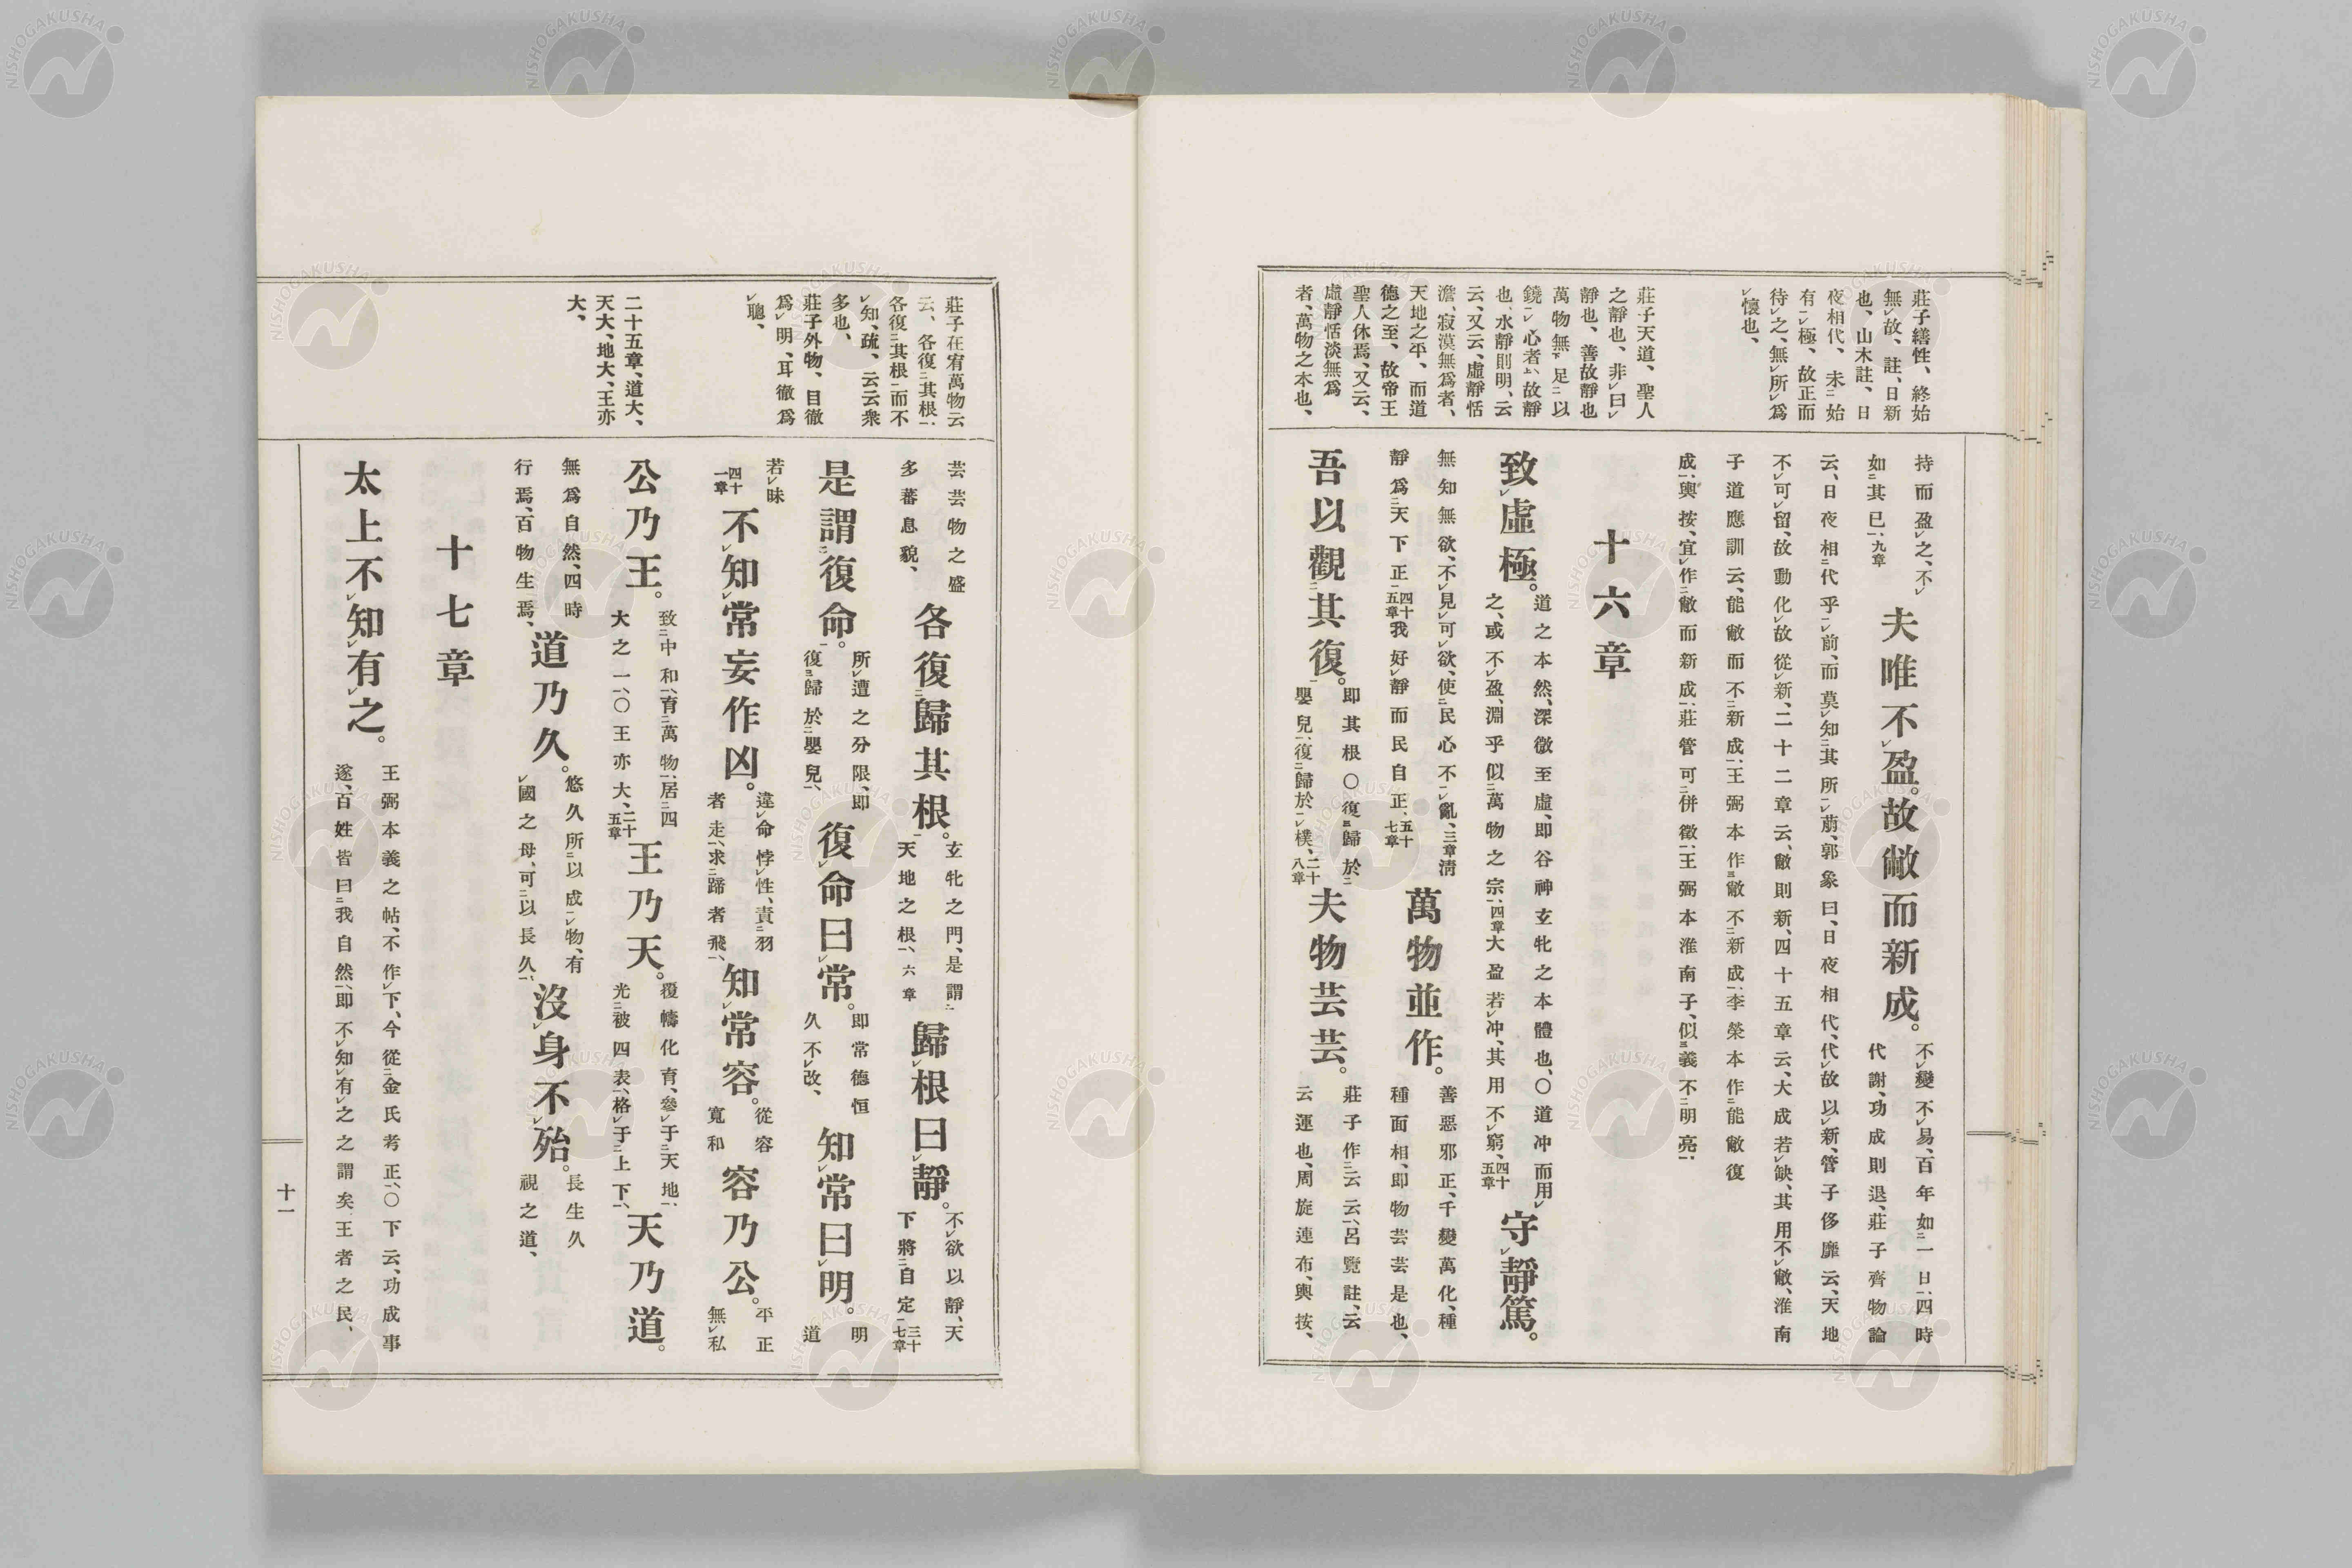 莊子繕性、終始
無レ故、註、日新
也、山木註、日
夜相代、未二始
有一レ極、故正而
待レ之、無レ所レ爲
レ懷也、
莊子天道、聖人
之靜也、非レ曰レ
靜也、善故靜也
萬物無下足三以
鏡二レ心者上、故靜
也、水靜則明、云
云、又云、虛靜恬
澹、寂漠無爲者、
天地之平、而道
德之至、故帝王
聖人休焉、又云、
虛靜恬淡無爲
者、萬物之本也、
持而盈レ之、不レ
如二其已一、九章
夫唯不レ盈。故敝而新成。
不レ變不レ易、百年如二一日一、四時
代謝、功成則退、莊子齊物論
云、日夜相二代乎一レ前、而莫レ知二其所一レ萠、郭象曰、日夜相代、代レ故以レ新、管子侈靡云、天地
不レ可レ留、故動化レ故從レ新、二十二章云、敝則新、四十五章云、大成若レ缺、其用不レ敝、淮南
子道應訓云、能敝而不二新成一、王弼本作三敝不二新成一、李榮本作二能敝復
成一、輿按、宜レ作二敝而新成一、莊管可二併徵一、王弼本淮南子、似三義不二明亮一、
十六章
致レ虛極。
道之本然、深微至虛、即谷神玄牝之本體也、〇道冲而用レ
之、或不レ盈、淵乎似二萬物之宗一、四章大盈若レ冲、其用不レ窮、四十五章
守レ靜篤。
無知無欲、不レ見レ可レ欲、使二民心不一レ亂、三章淸
靜爲二天下正一四十五章我好レ靜而民自正、五十七章
萬物並作。
善惡邪正、千變萬化、種
種面相、即物芸芸是也、
吾以觀二其復一。
即其根〇復三歸於二
嬰兒一、復二歸於一レ樸、二十八章
夫物芸芸。
莊子作二云云一、呂覽註、云
云運也、周旋運布、輿按、
莊子在宥萬物云
云、各復二其根一、
各復二其根一而不
レ知、疏、云云衆
多也、
莊子外物、目徹
爲レ明、耳徹爲
レ聰、
二十五章、道大、
天大、地大、王亦
大、
芸芸物之盛
多蕃息貌、
各復二歸其根一。
玄牝之門、是謂二
天地之根一、六章
歸レ根曰レ靜。
不レ欲以靜、天
下將二自定一三十七章
是謂二復命一。
所レ遭之分限、即
復三歸於二嬰兒一、
復レ命曰レ常。
即常德恒
久不レ改、
知レ常曰レ明。
明道
若レ昧
四十一章
不レ知レ常妄作凶。
違レ命悖レ性、責二羽
者走一、求二蹄者飛一、
知レ常容。
從容
寬和
容乃公。
平正
無レ私
公乃王。
致二中和一、育二萬物一、居二四
大之一一、〇王亦大、二十五章
王乃天。
覆幬化育、參レ于二天地一、
光二被四表一、格レ于二上下一、
天乃道。
無爲自然、四時
行焉、百物生焉、
道乃久。
悠久所二以成一レ物、有
レ國之母、可二以長久一、
沒レ身不レ殆。
長生久
視之道、
十七章
太上不レ知レ有レ之。
王弼本義之帖、不作レ下、今從二金氏考正一、〇下云、功成事
遂、百姓皆曰二我自然一、即不レ知レ有レ之之謂矣、王者之民、
十一